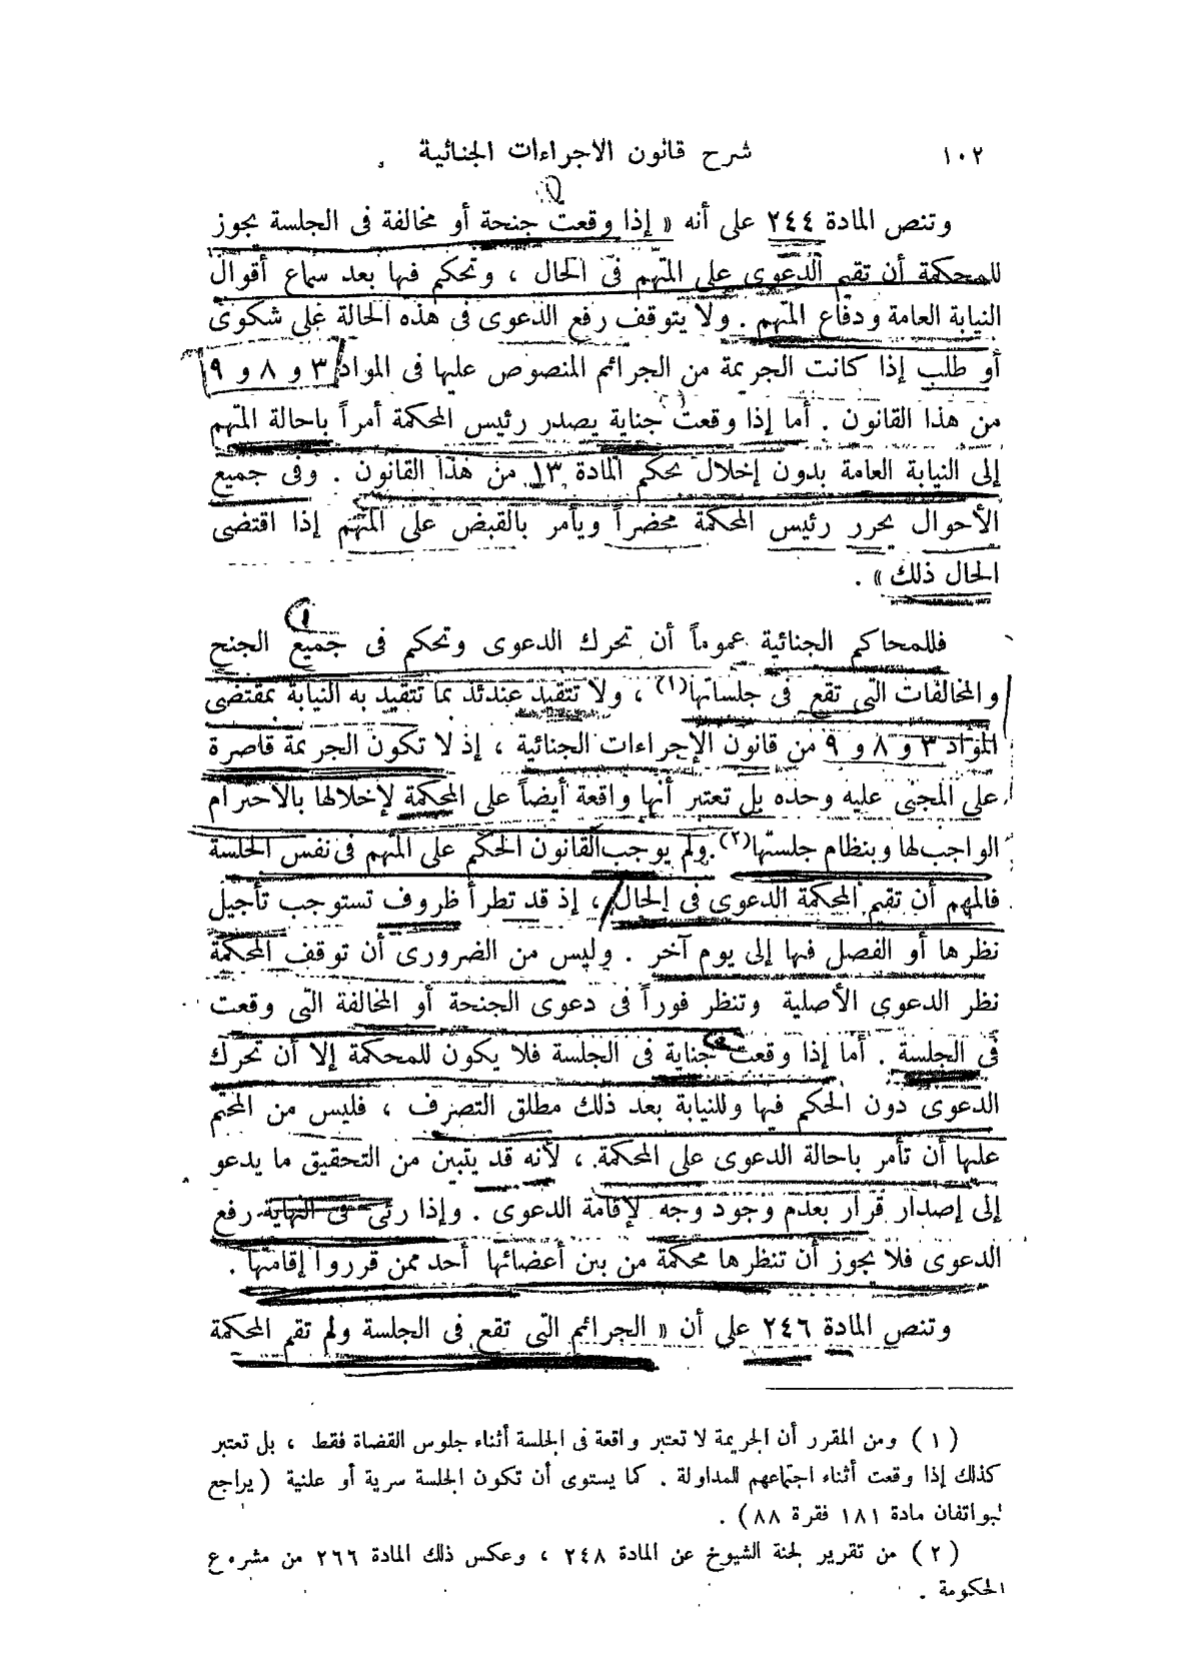 ١٠٢ شرح قانون الاجراءات الجنائية
وتنص المادة ٢٤٤ على أنه « إذا وقعت جنحة أو مخالفة فى الجلسة يجوز
للمحكمة أن تقيم الدعوى على المتهم فى الحال ، وتحكم فيها بعد سماع أقوال
النيابة العامة ودفاع المتهم . ولا يتوقف رفع الدعوى فى هذه الحالة على شكوى
أو طلب إذا كانت الجريمة من الجرائم المنصوص عليها فى المواد ٣ و ٨ و ٩
من هذا القانون . أما إذا وقعت جناية يصدر رئيس المحكمة أمراً باحالة المتهم
إلى النيابة العامة بدون إخلال بحكم المادة ١٣ من هذا القانون . وفى جميع
الأحوال يحرر رئيس المحكمة محضراً ويأمر بالقبض على المتهم إذا اقتضى
الحال ذلك » .
فللمحاكم الجنائية عموماً أن تحرك الدعوى وتحكم فى جميع الجنح
والمخالفات التى تقع فى جلساتها(١) ، ولا تتقيد عندئذ بما تتقيد به النيابة بمقتضى
المواد ٣ و ٨ و ٩ من قانون الإجراءات الجنائية ، إذ لا تكون الجريمة قاصرة
على المجنى عليه وحده بل تعتبر أنها واقعة أيضاً على المحكمة لإخلالها بالاحترام
الواجب لها وبنظام جلستها(٢) . ولم يوجب القانون الحكم على المتهم فى نفس الجلسة
فالمهم أن تقيم المحكمة الدعوى فى الحال ، إذ قد تطرأ ظروف تستوجب تأجيل
نظرها أو الفصل فيها إلى يوم آخر . وليس من الضرورى أن توقف المحكمة
نظر الدعوى الأصلية وتنظر فوراً فى دعوى الجنحة أو المخالفة التى وقعت
فى الجلسة . أما إذا وقعت جناية فى الجلسة فلا يكون للمحكمة إلا أن تحرك
الدعوى دون الحكم فيها وللنيابة بعد ذلك مطلق التصرف ، فليس من المحتم
عليها أن تأمر باحالة الدعوى على المحكمة ، لأنه قد يتبين من التحقيق ما يدعو
إلى إصدار قرار بعدم وجود وجه لإقامة الدعوى . وإذا رئى فى النهاية رفع
الدعوى فلا يجوز أن تنظرها محكمة من بين أعضائها أحد ممن قرروا إقامتها .
وتنص المادة ٢٤٦ على أن « الجرائم التى تقع فى الجلسة ولم تقم المحكمة
( ١ ) ومن المقرر أن الجريمة لا تعتبر واقعة فى الجلسة أثناء جلوس القضاة فقط ، بل تعتبر
كذلك إذا وقعت أثناء اجتماعهم للمداولة . كما يستوى أن تكون الجلسة سرية أو علنية ( يراجع
لبواتفان مادة ١٨١ فقرة ٨٨ ) .
( ٢ ) من تقرير لجنة الشيوخ عن المادة ٢٤٨ ، وعكس ذلك المادة ٢٦٦ من مشروع
الحكومة .